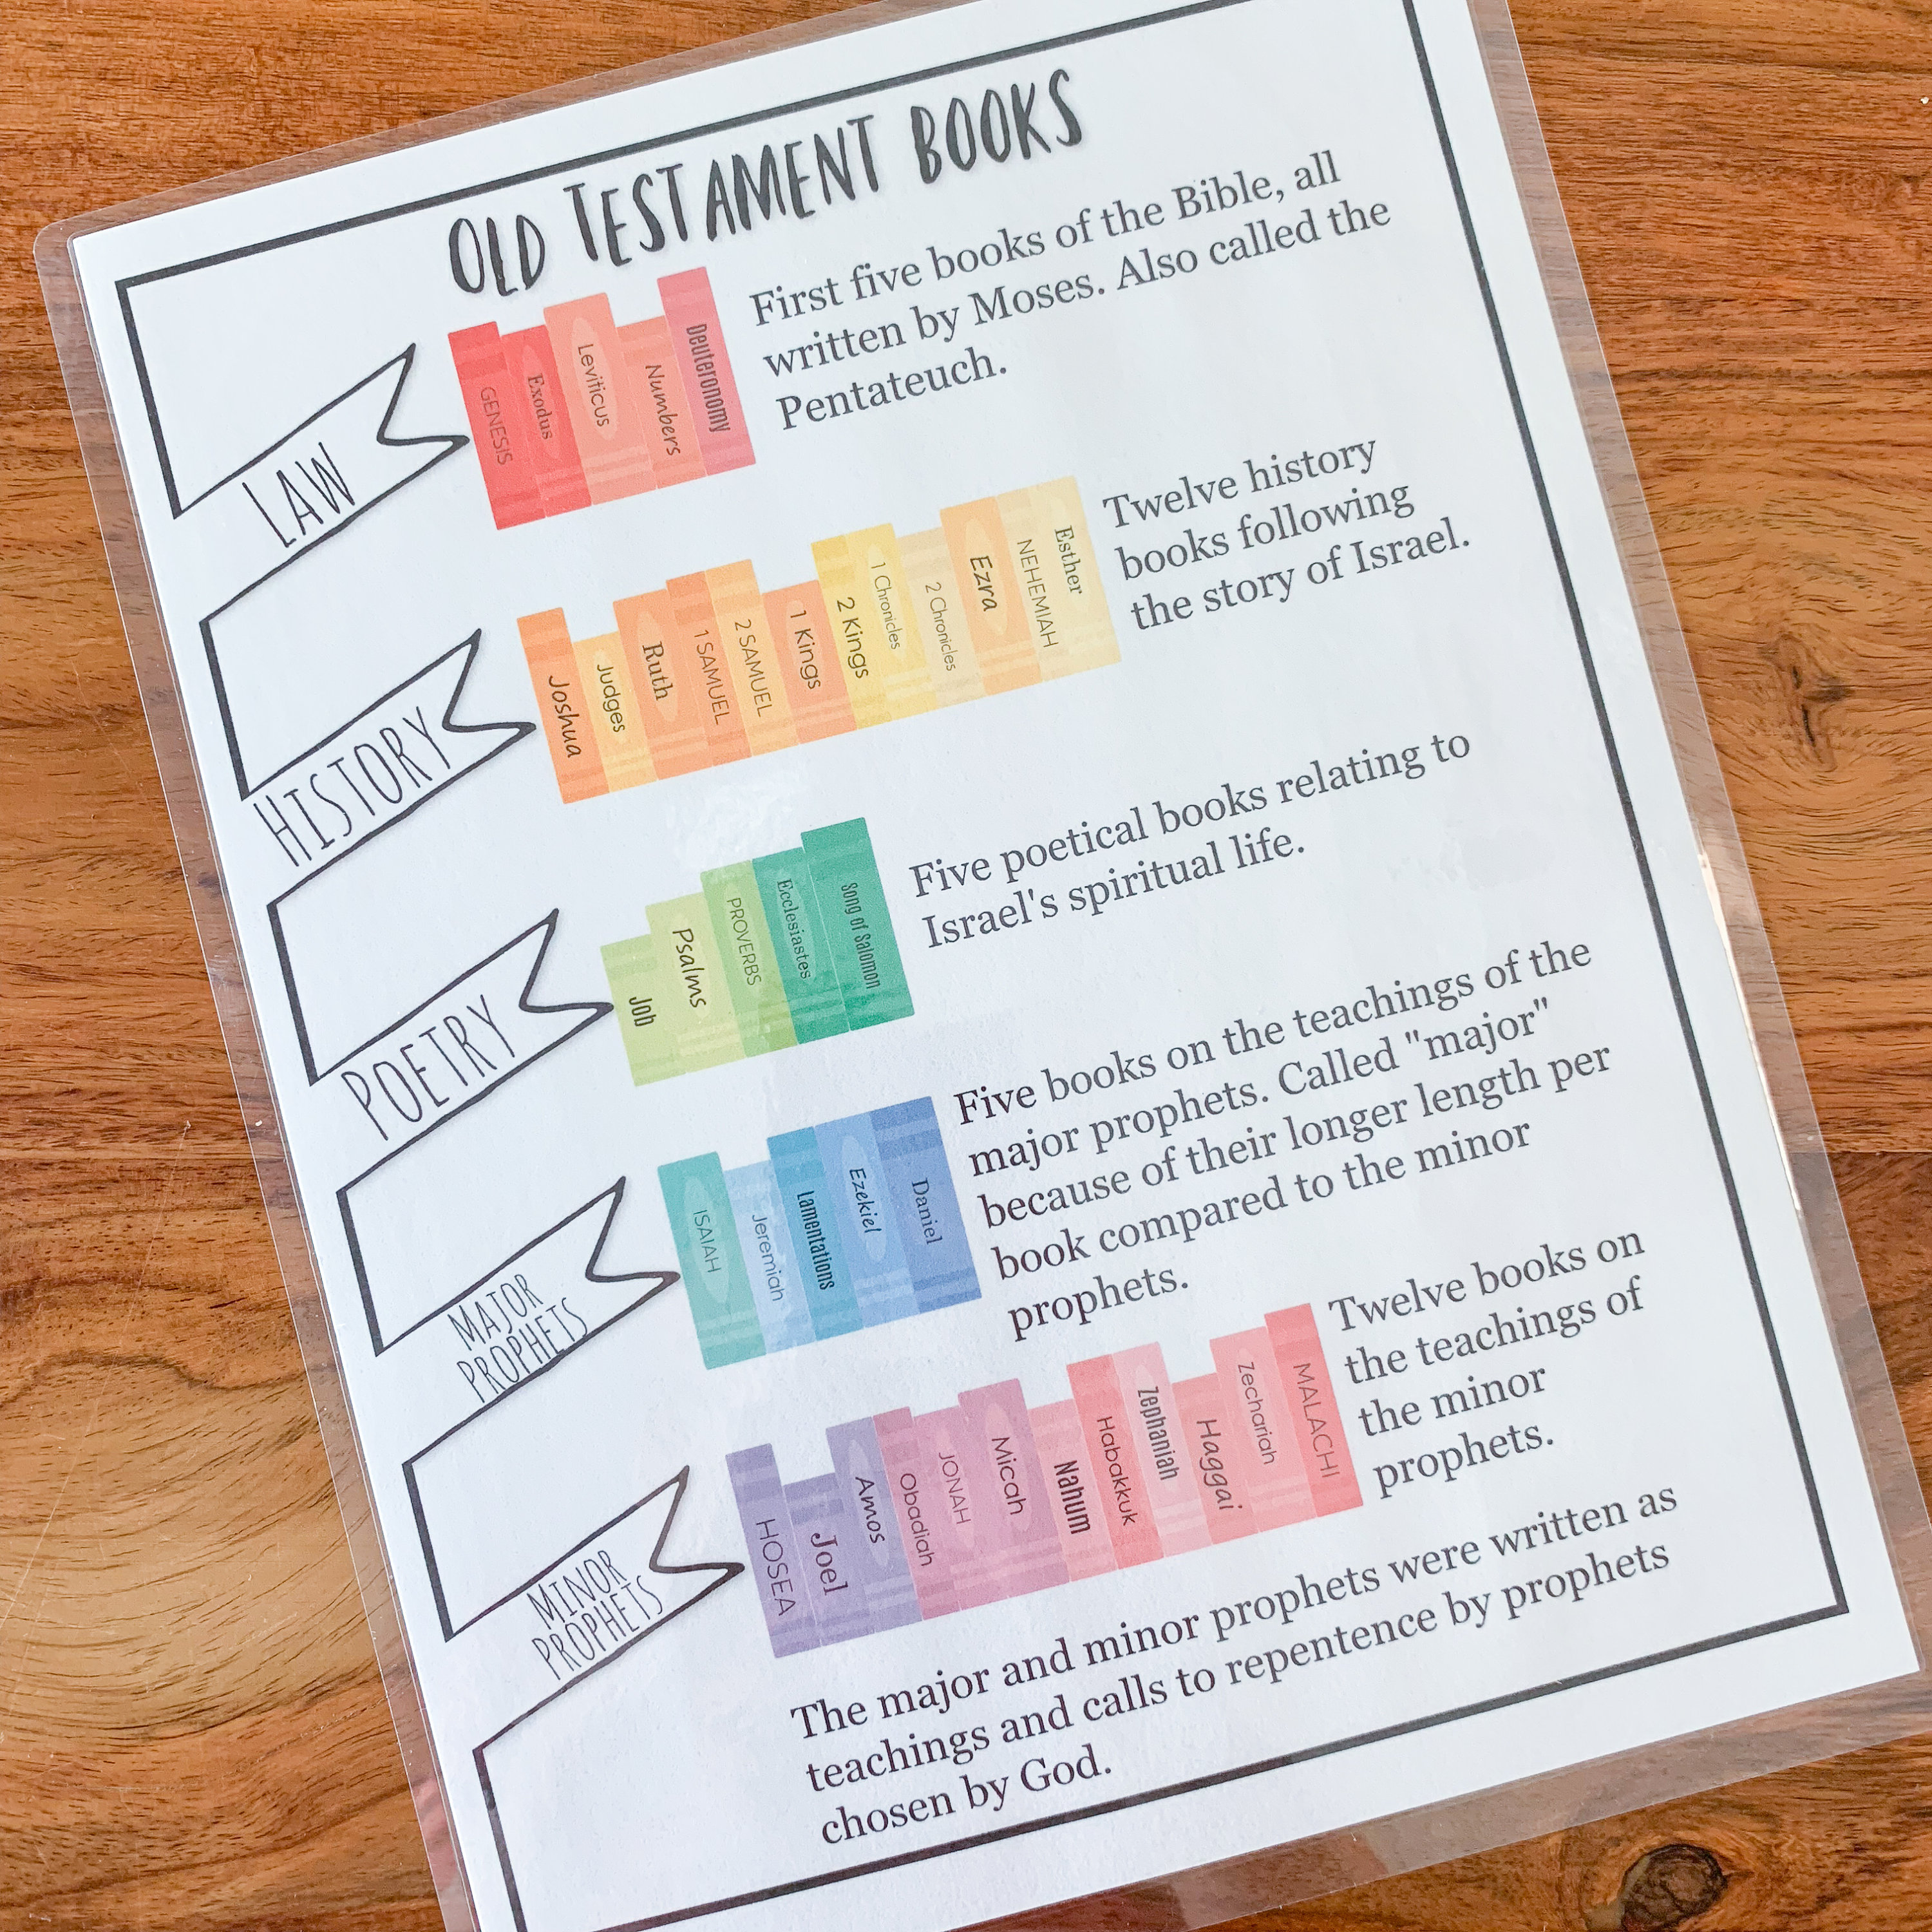 OLD TESTAMENT BOOKS
LAW
GENESIS
Exodus
Leviticus
Numbers
Deuteronomy
First five books of the Bible, all
written by Moses. Also called the
Pentateuch.
HISTORY
Joshua
Judges
Ruth
1 SAMUEL
2 SAMUEL
1 Kings
2 Kings
1 Chronicles
2 Chronicles
Ezra
NEHEMIAH
Esther
Twelve history
books following
the story of Israel.
POETRY
Job
Psalms
PROVERBS
Ecclesiastes
Song of Salomon
Five poetical books relating to
Israel's spiritual life.
MAJOR
PROPHETS
ISAIAH
Jeremiah
Lamentations
Ezekiel
Daniel
Five books on the teachings of the
major prophets. Called "major"
because of their longer length per
book compared to the minor
prophets.
MINOR
PROPHETS
HOSEA
Joel
Amos
Obadiah
JONAH
Micah
Nahum
Habakkuk
Zephaniah
Haggai
Zechariah
MALACHI
Twelve books on
the teachings of
the minor
prophets.
The major and minor prophets were written as
teachings and calls to repentence by prophets
chosen by God.